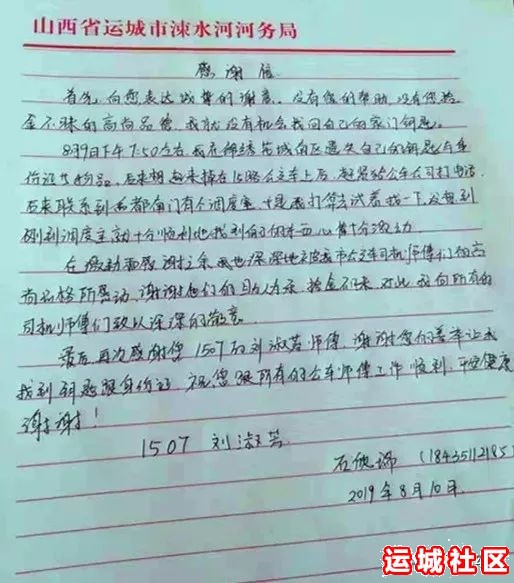 山西省运城市涑水河河务局
感谢信
首先,向您表达诚挚的谢意,没有您的帮助,没有您拾
金不昧的高尚品德,我就没有机会找回自己的家门钥匙。
8月9日下午7:50左右,我在锦绣花城南区遗失自己的钥匙与身
份证等物品,后来想起来掉在15路公交车上后,赶紧给公交公司打电话,
后来联系到西都南门有个调度室,于是打算去试着找一下,没想到
刚到调度室就十分顺利地找到自己的东西,心里十分激动。
在激动和感谢之余,我也深深地被城市公交车司机师傅们的高
尚品格所感动,谢谢他们的助人为乐,拾金不昧,对此,我向所有的
司机师傅们致以深深的敬意。
最后再次感谢您 1507的刘淑芸师傅,谢谢您的善举让我
找到钥匙跟身份证,祝您跟所有的公车师傅工作顺利,平安健康
谢谢!
1507 刘淑芸
石俊瑞 (18435112185)
2019年8月10日.
运城社区